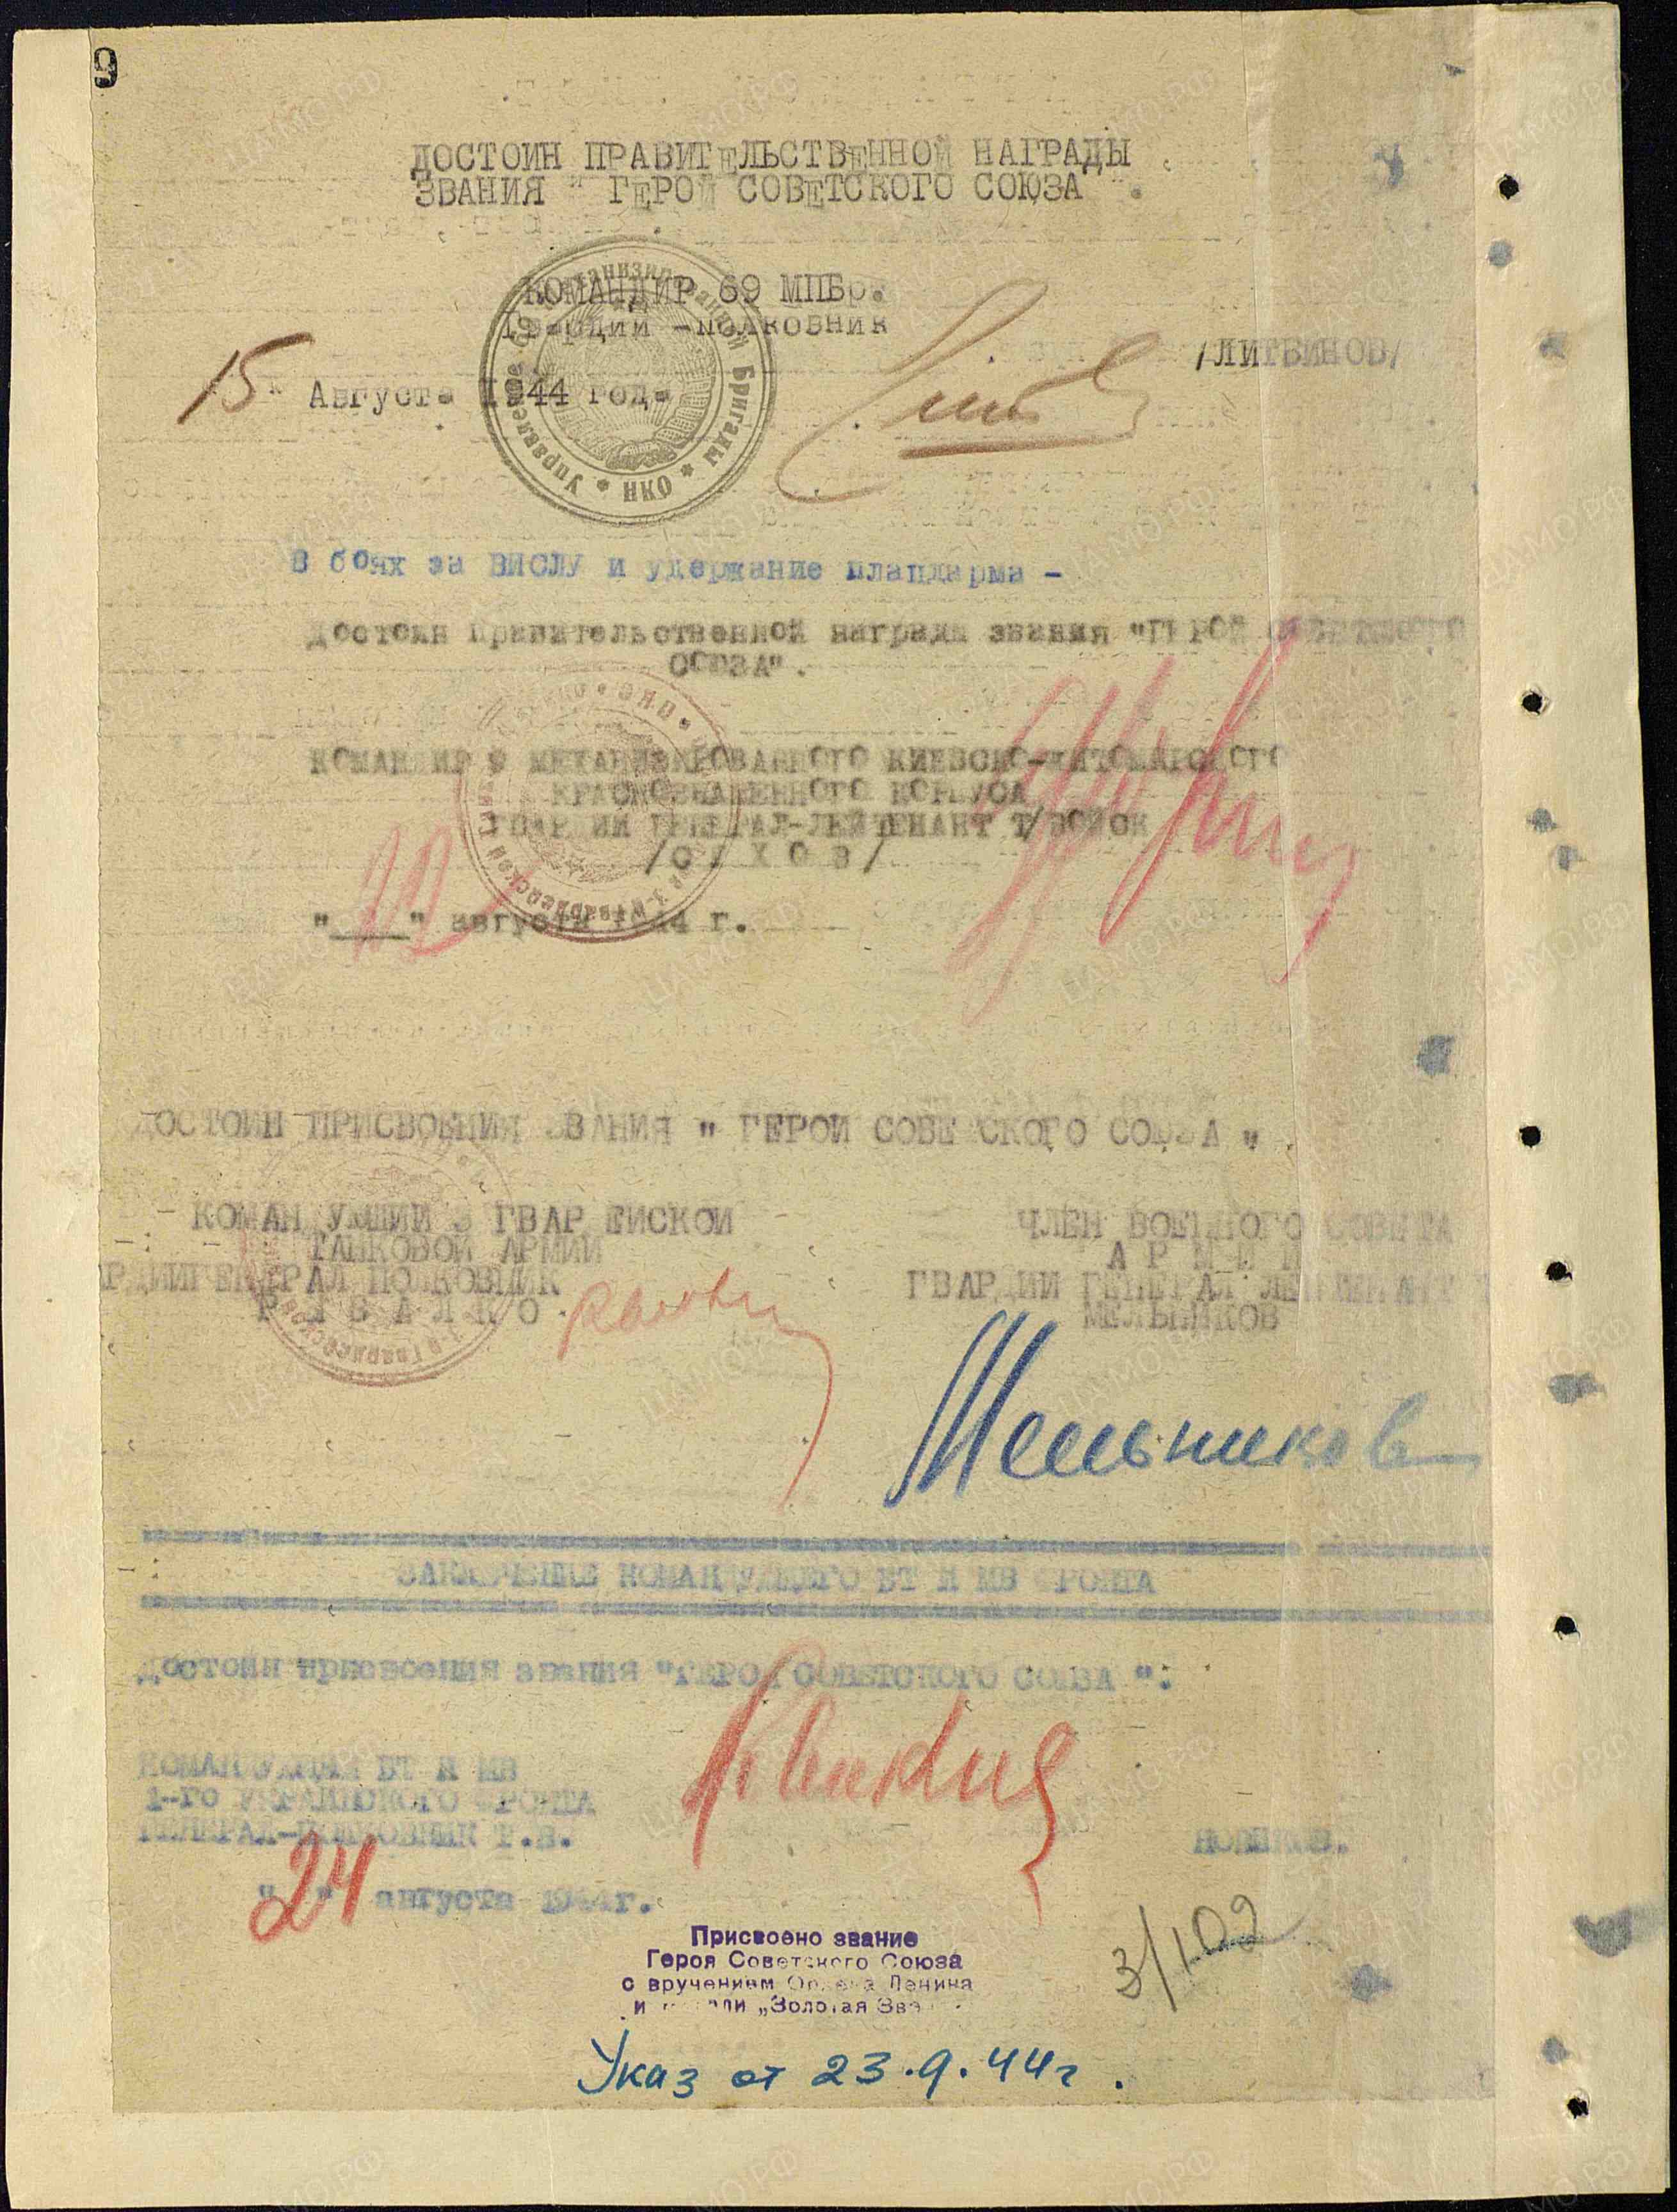 9
ДОСТОИН ПРАВИТЕЛЬСТВЕННОЙ НАГРАДЫ
ЗВАНИЯ " ГЕРОЙ СОВЕТСКОГО СОЮЗА ".
КОМАНДИР 69 МПБр.
Гвардии -полковник
/ЛИТВИНОВ/
15 Августа 1944 года
Управление 69 Механизированной Бригады * НКО *
В боях за ВИСЛУ и удержание плацдарма -
достоин Правительственной награды звания "ГЕРОЙ СОВЕТСКОГО
СОЮЗА".
КОМАНДИР 9 МЕХАНИЗИРОВАННОГО КИЕВСКО-ЖИТОМИРСКОГО
КРАСНОЗНАМЕННОГО КОРПУСА
ГВАРДИИ ГЕНЕРАЛ-ЛЕЙТЕНАНТ Т/ВОЙСК
/С У Х О В/
"___" августа 1944 г.
ДОСТОИН ПРИСВОЕНИЯ ЗВАНИЯ " ГЕРОЙ СОВЕТСКОГО СОЮЗА ".
КОМАНДУЮЩИЙ 3 ГВАРДЕЙСКОЙ
ТАНКОВОЙ АРМИИ
ГЕНЕРАЛ ПОЛКОВНИК
Р Ы Б А Л К О
ЧЛЕН ВОЕННОГО СОВЕТА
А Р М И И
ГВАРДИИ ГЕНЕРАЛ ЛЕЙТЕНАНТ
МЕЛЬНИКОВ
Мельников
ЗАКЛЮЧЕНИЕ КОМАНДУЮЩЕГО БТ И МВ ФРОНТА
Достоин присвоения звания "ГЕРОЙ СОВЕТСКОГО СОЮЗА ".
КОМАНДУЮЩИЙ БТ И МВ
1-го УКРАИНСКОГО ФРОНТА
ГЕНЕРАЛ-ПОЛКОВНИК Т.В.
НОВИКОВ.
"24" августа 1944г.
Присвоено звание
Героя Советского Союза
с вручением Ордена Ленина
и медали „Золотая Звезда
3/102
Указ от 23.9.44г.